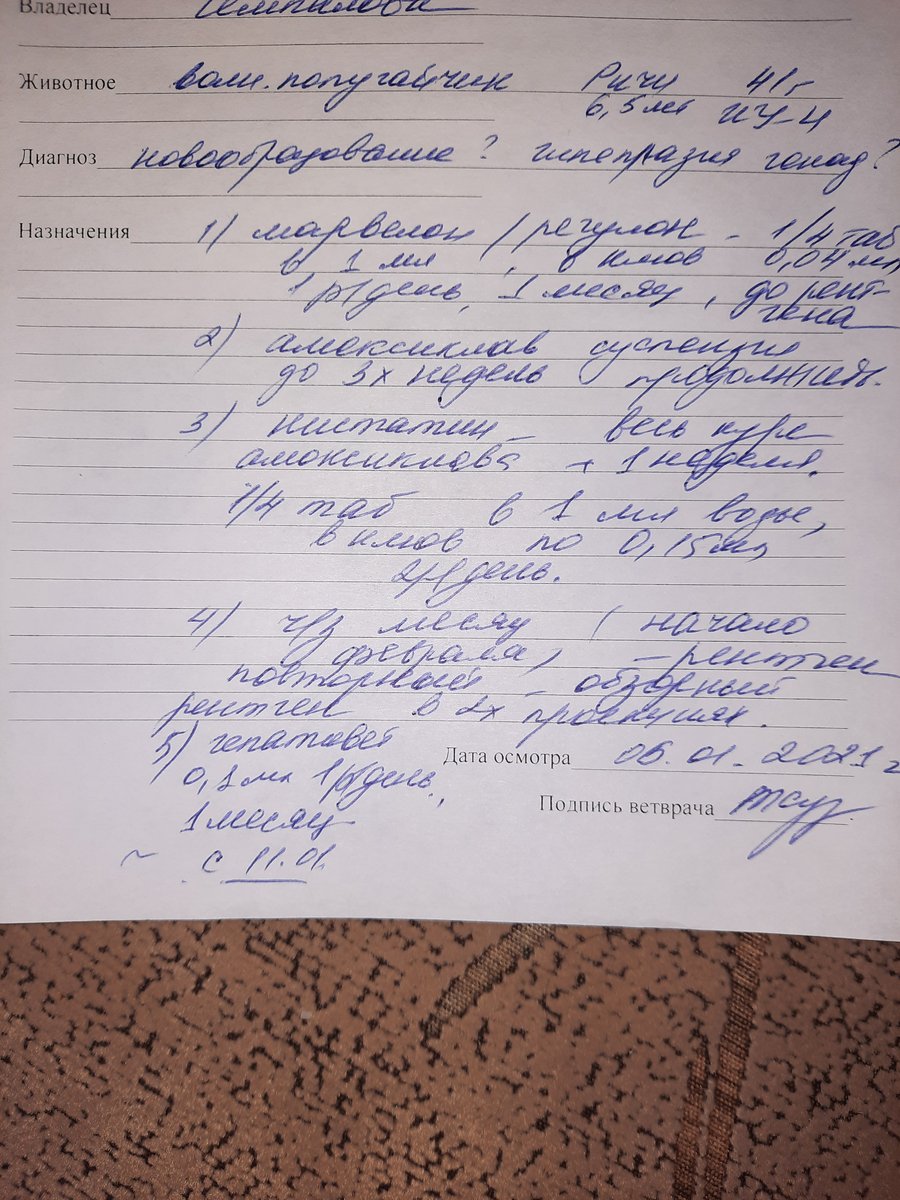 Владелец
Животное волн. попугайчик Ричи 41 г
6,5 лет ИУ-4
Диагноз новообразование? гиперплазия гонад?
Назначения 1) марвелон / регулон - 1/4 таб
в 1 мл, в клюв 0,04 мл
1 р/день, 1 месяц, до рент-
гена
2) амоксиклав суспензия
до 3х недель продолжить.
3) нистатин - весь курс
амоксиклава + 1 неделя.
1/4 таб в 1 мл воды,
в клюв по 0,15 мл
2 р/день.
4) ч/з месяц (начало
февраля) - рентген
повторный - обзорный
рентген в 2х проекциях.
5) гепатовет
0,1 мл 1 р/день,
1 месяц
~ с 11.01.
Дата осмотра 06.01.2021 г
Подпись ветврача